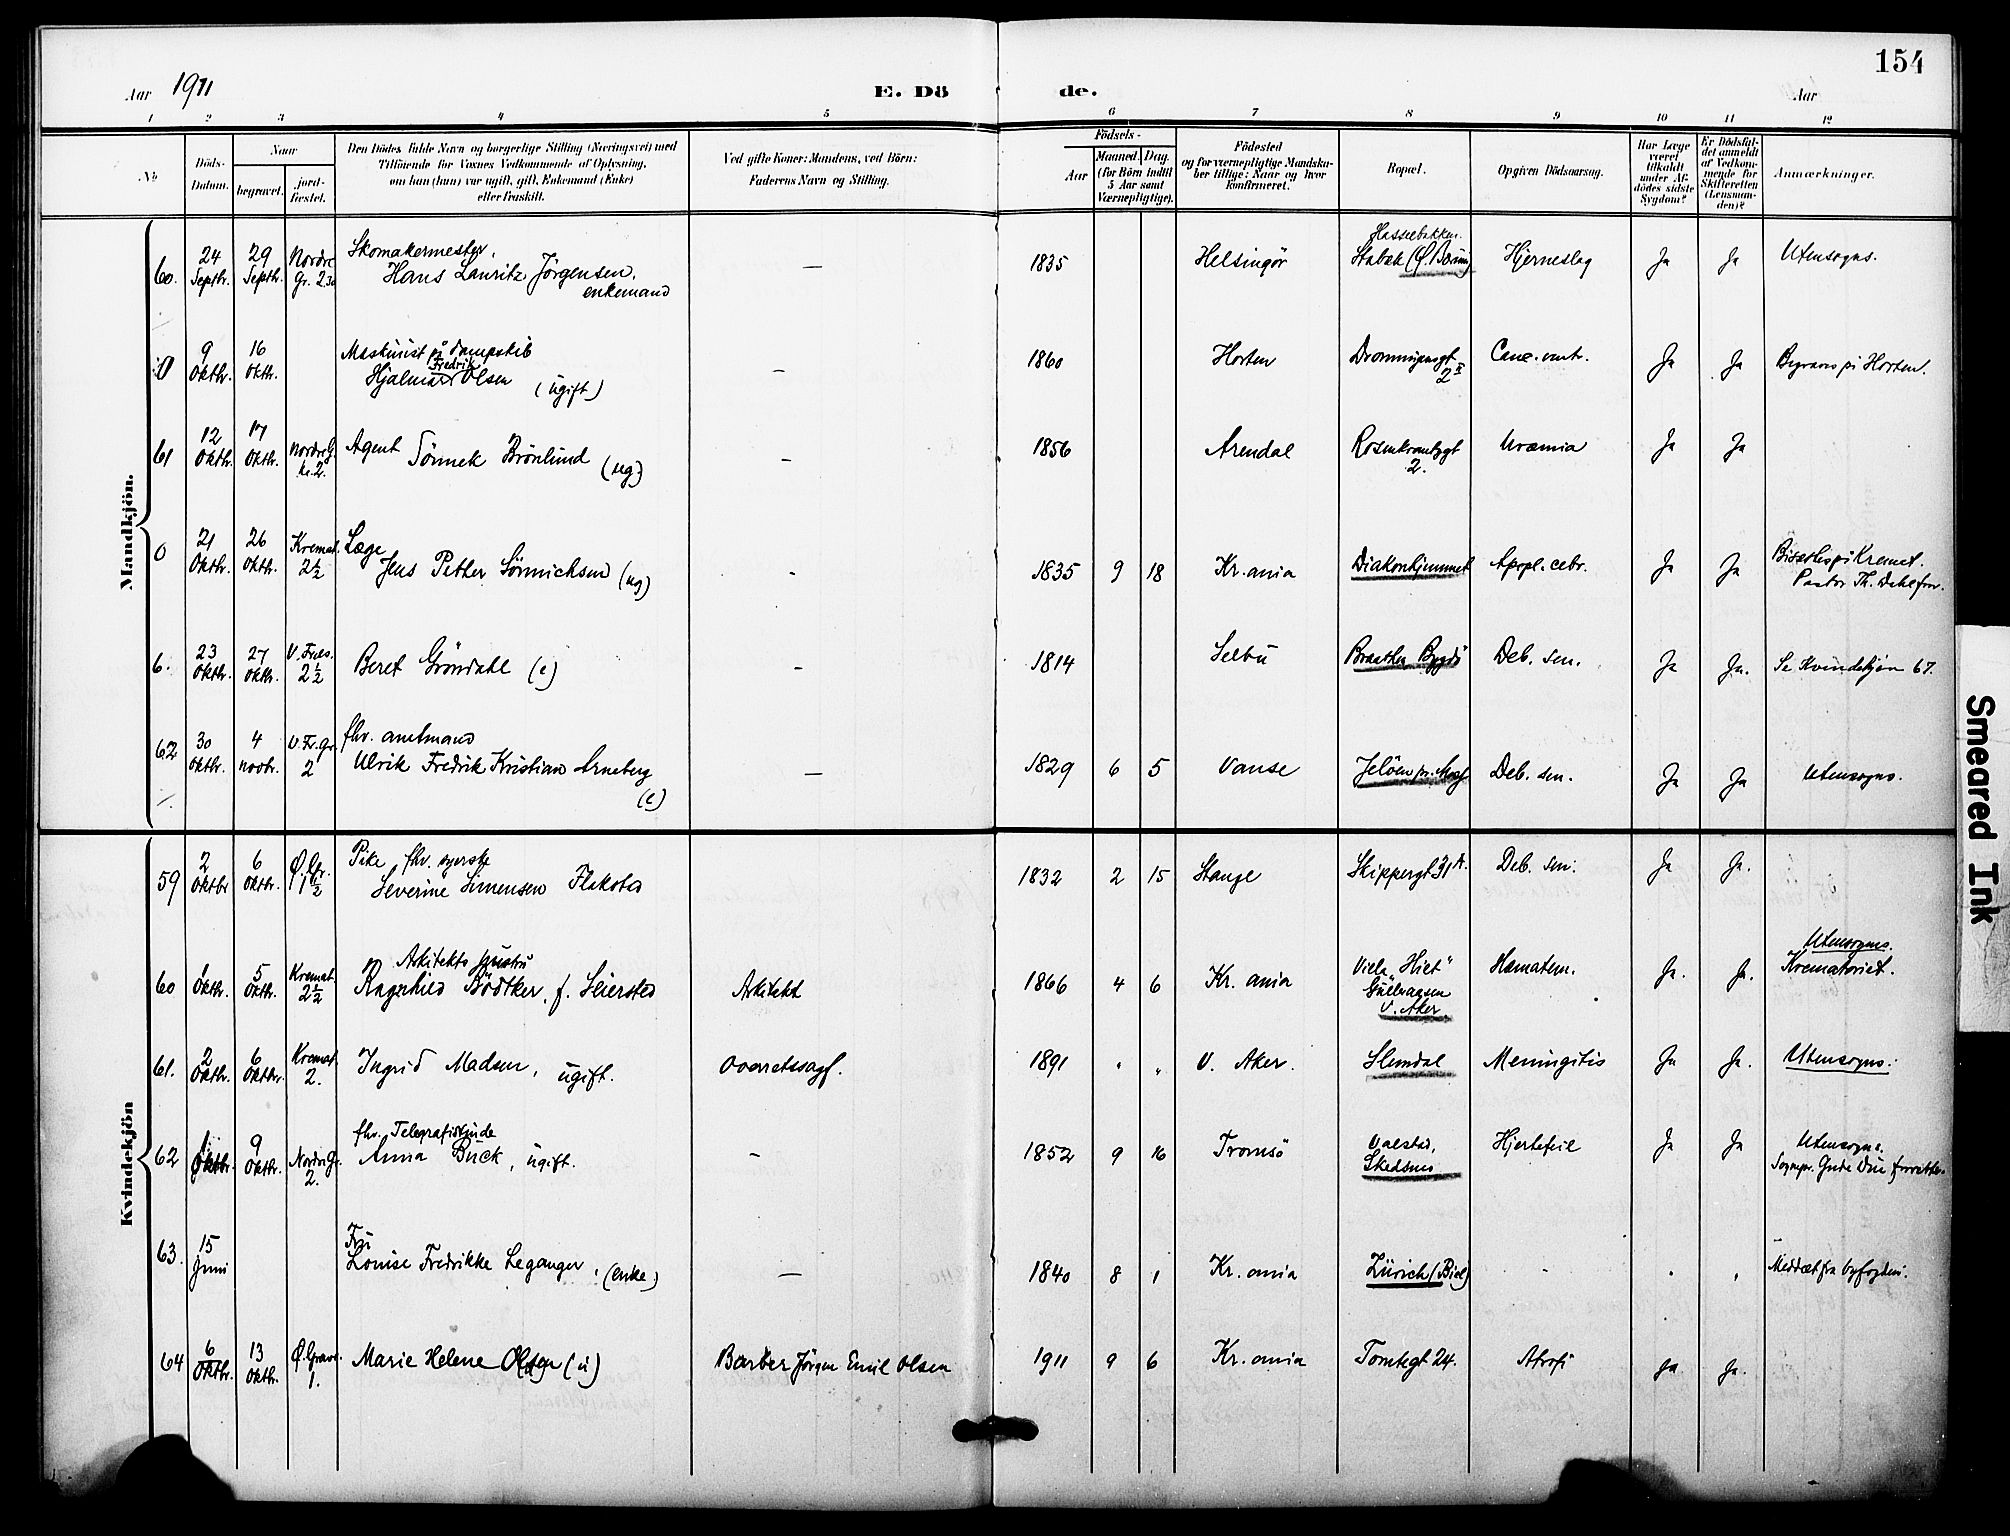 154
Aar 1911 E. Dö de. Aar
1 2 3 4 5 6 7 8 9 10 11 12
No.
Döds-
Datum.
Naar
begravet.
jord-
fæstet.
Den Dödes fulde Navn og borgerlige Stilling (Næringsvei) med
Tilföiende for Voxnes Vedkommende af Oplysning,
om han (hun) var ugift, gift, Enkemand (Enke)
eller fraskilt.
Ved gifte Koner: Mandens, ved Börn:
Faderens Navn og Stilling.
Födsels-
Aar
Maaned. Dag.
(for Börn indtil
5 Aar samt
Værnepligtige).
Födested
og for værnepligtige Mandska-
ber tillige: Naar og hvor
konfirmeret.
Bopæl.
Opgiven Dödsaarsag.
Har Læge
været
tilkaldt
under Af-
dödes sidste
Sygdom?
Er Dödsfal-
det anmeldt
af Vedkom-
mende for
Skifteretten
(Lensman-
den)?
Anmærkninger.
Mandkjön.
60. 24 Septbr. 29 Septbr. Nordre Gr. 2 30
Skomakermester,
Hans Lauritz Jörgensen,
enkemand
— 1835 Helsingör
Stabæk (Ö. Bærum) Hjerneslag Ja Ja Utensogns.
0 9 Oktbr. 16 Oktbr.
Maskinist på dampskib
Hjalmar Fredrik Olsen (ugift)
— 1860 Horten Dronningensgt 2 II Canc. ventr. Ja Ja Begraves på Horten.
61 12 Oktbr. 17 Oktbr. Nordre G. kr. 2.
Agent Sönnek Brönlund (ug)
— 1856 Arendal Rosenkrantzgt 2. Uræmia Ja Ja
0 21 Oktbr. 26 Oktbr. Kremat. 2 1/2
Læge
Jens Petter Sönnichsen (ug)
- 1835 9 18 Kr.ania Diakonhjemmet Apopl. cebr. Ja Ja
Bisættes på Kremat.
Pastor Th. Dahl forr.
6. 23 Oktbr. 27 Oktbr. V. Frels. 2 1/2
Beret Gröndahl (e)
- 1814 Selbu Braathen Bygdö Deb. sen. Ja Ja. Se Kvindekjön 67.
62 30 Oktbr. 4 novbr. V. Fr. gr. 2
fhv. amtmand
Ulrik Fredrik Kristian Arneberg
(e)
— 1829 6 5 Vanse Jelöen pr. Moss Deb. sen. Ja Ja Utensogns.
Kvindekjön
59 2 Oktbr 6 Oktbr. Ö. Gr. 1 1/2
Pike, fhv. syerske
Severine Simensen Flakstad
1832 2 15 Stange Skippergt 31 A. Deb. sen. Ja Ja.
60 1 Oktbr. 5 Oktbr. Kremat. 2 1/2
Arkitekts hustru
Ragnhild Bödtker, f. Seiersted
Arkitekt 1866 4 6 Kr. ania
Villa "Hiet"
V. Aker.
Hæmatem. Ja. Ja.
Utensogns.
Krematoriet.
61. 2 Oktbr. 6 Oktbr. Kremat. 2.
Ingrid Madsen, ugift.
Overretssagf. 1891 " " V. Aker. Slemdal Meningitis Ja Ja. Utensogns.
62 1 Oktbr. 9 Oktbr. Nordre Gr. 2.
fhv. Telegrafistinde
Anna Buck, ugift.
- 1852 9 16 Tromsö
Skedsmo
Hjertefeil Ja Ja
Utensogns.
63. 15 Juni
Fru
Louise Fredrikke Leganger, (enke)
— 1840 8 1 Kr. ania Zürich (Biel) - . ,
Meddelt fra byfogden.
64 6 Oktbr. 13 Oktbr. Ö. Grav. 1.
Marie Helene Olsen (u)
Barber Jörgen Emil Olsen 1911 9 6 Kr. ania Tomtegt 24. Atrofi Ja Ja.
Smeared Ink